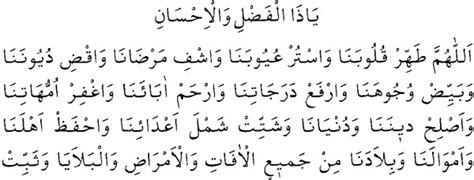 يَاذَا الْفَضْلِ وَالْاِحْسَانِ
اَللّٰهُمَّ طَهِّرْ قُلُوبَنَا وَاسْتُرْ عُيُوبَنَا وَاشْفِ مَرْضَانَا وَاقْضِ دُيُونَنَا
وَبَيِّضْ وُجُوهَنَا وَارْفَعْ دَرَجَاتِنَا وَارْحَمْ اٰبَائَنَا وَاغْفِرْ اُمَّهَاتِنَا
وَاَصْلِحْ دٖينَنَا وَدُنْيَانَا وَشَتِّتْ شَمْلَ اَعْدَائِنَا وَاحْفَظْ اَهْلَنَا
وَاَمْوَالَنَا وَبِلَادَنَا مِنْ جَمٖيعِ الْاٰفَاتِ وَالْاَمْرَاضِ وَالْبَلَايَا وَثَبِّتْ